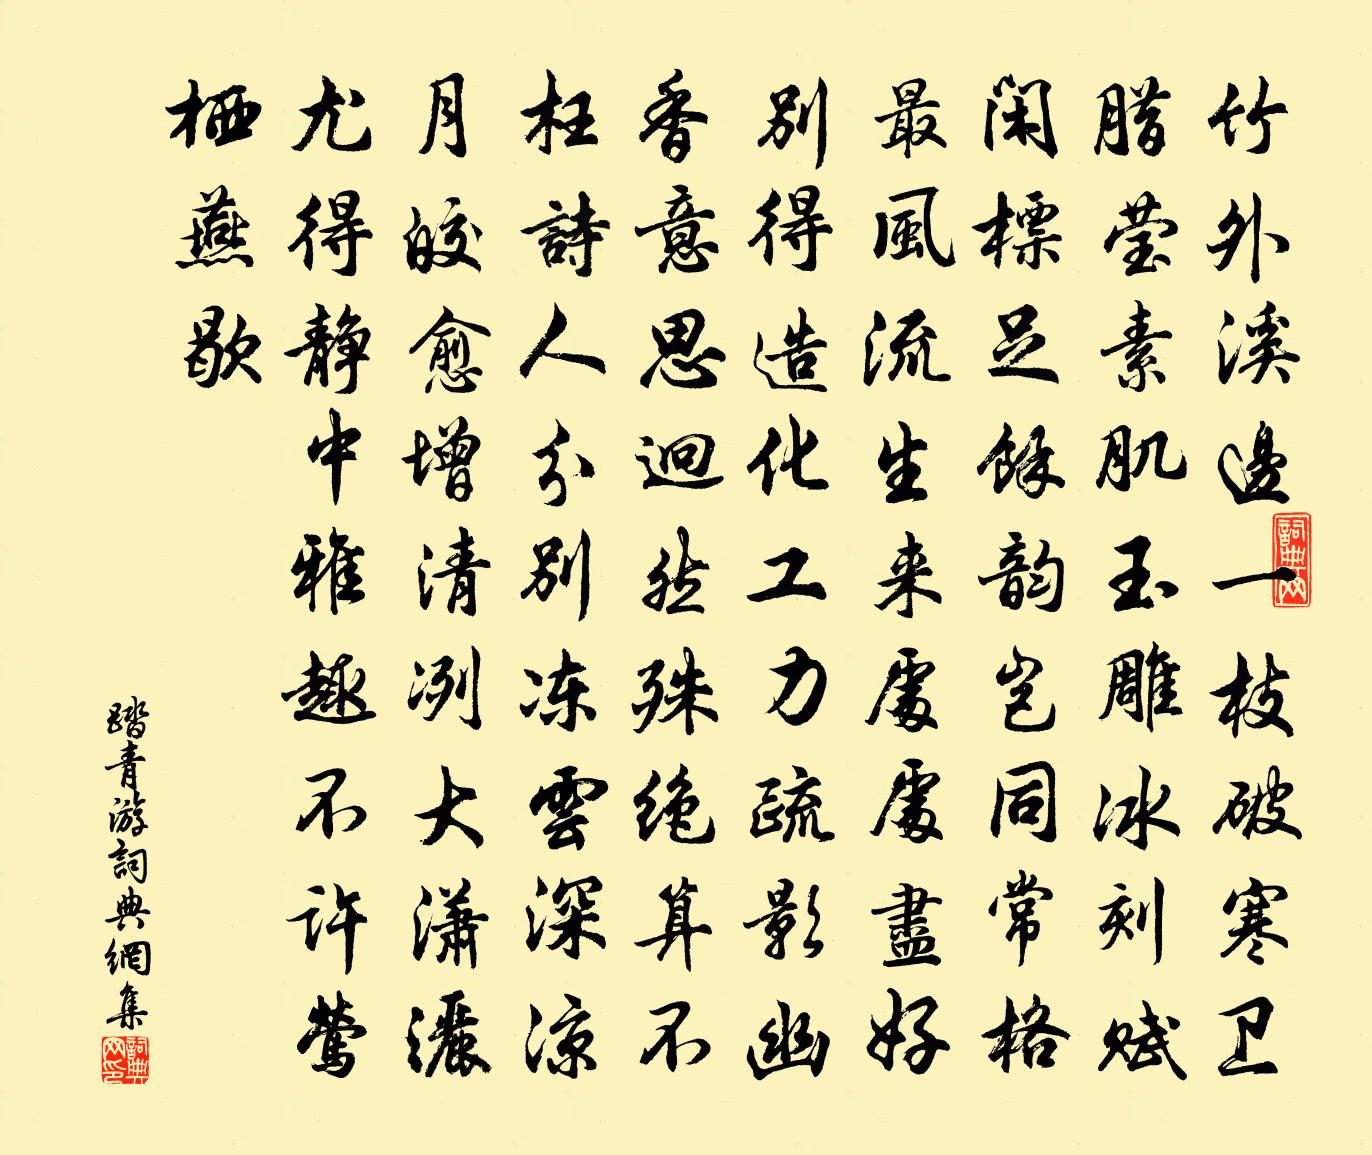 竹外溪邊一枝破寒卫
腊莹素肌玉雕冰刻赋
闲標足餘韵岂同常格
最風流生来處處盡好
别得造化工力疏影幽
香意思迥然殊绝算不
枉詩人分别冻雲深凉
月皎愈增清冽大潇灑
尤得静中雅趣不许莺
栖燕歇
踏青游詞典網集
詞典网